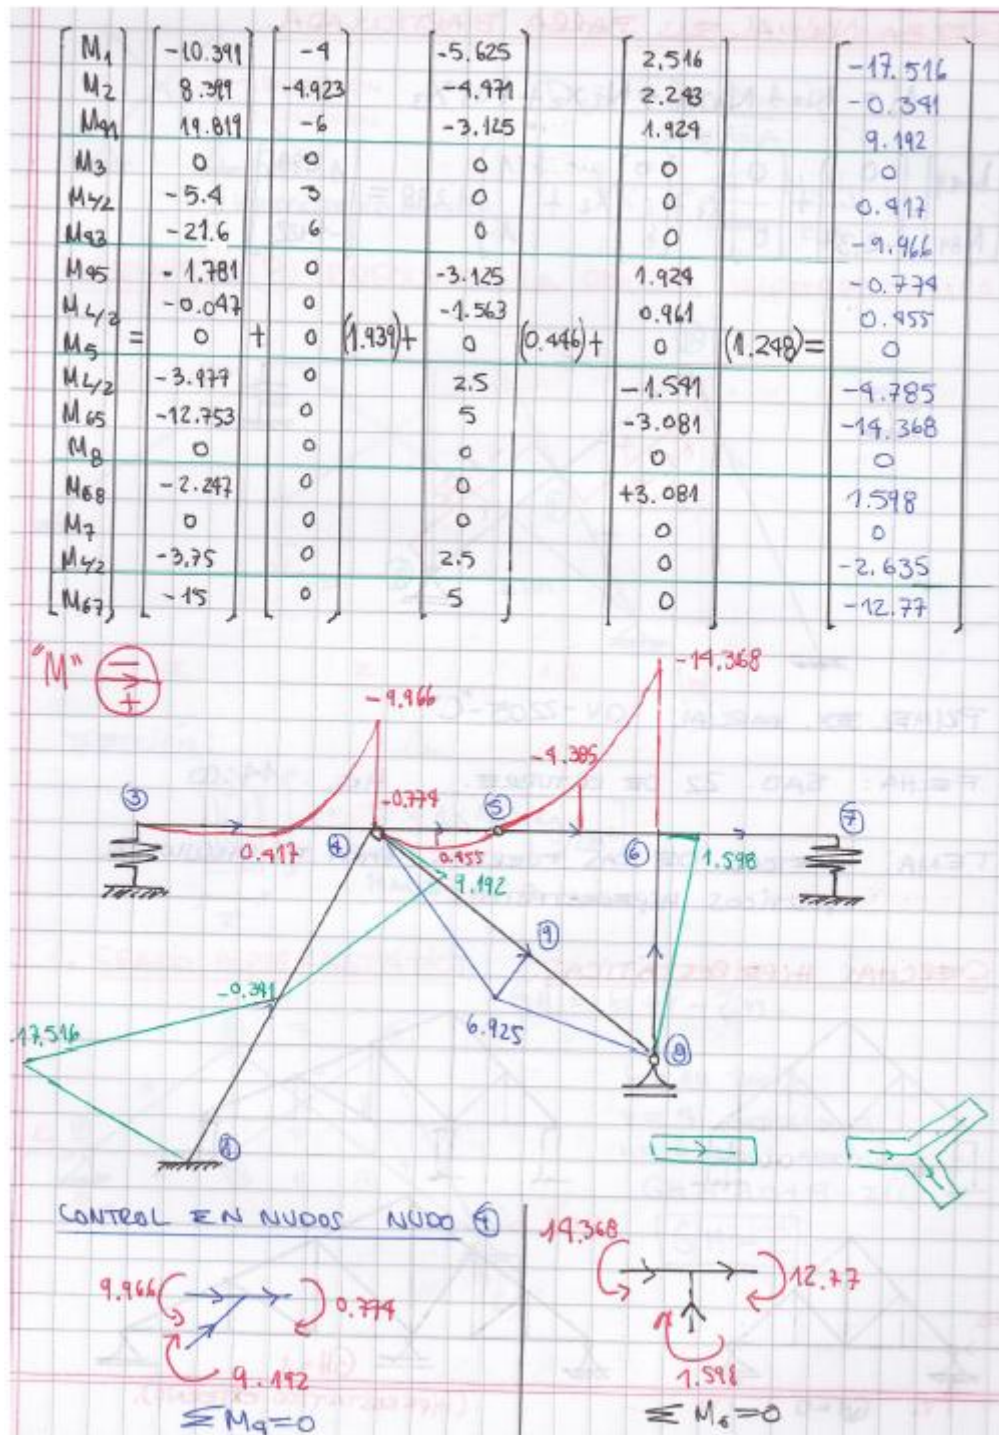 M₁ -10.391 -4 -5.625 2.516 -17.516
M₂ 8.399 -4.923 -4.471 2.243 -0.341
M₄₁ 19.819 -6 -3.125 1.924 9.192
M₃ 0 0 0 0 0
M L/2 -5.4 3 0 0 0.417
M₄₃ -21.6 6 0 0 -9.966
M₄₅ -1.781 0 -3.125 1.924 -0.774
M L/2 -0.047 0 -1.563 0.961 0.455
M₅ = 0 + 0 (1.939)+ 0 (0.446)+ 0 (1.248)= 0
M L/2 -3.977 0 2.5 -1.541 -4.785
M₆₅ -12.753 0 5 -3.081 -14.368
M₈ 0 0 0 0 0
M₆₈ -2.247 0 0 +3.081 1.598
M₇ 0 0 0 0 0
M L/2 -3.75 0 2.5 0 -2.635
M₆₇ -15 0 5 0 -12.77
"M" - +
-14.368
-9.966
-4.385
3 -0.774 5 7
0.417 4 0.455 6 1.598
9.192
9
-0.341
17.516 6.925
8
CONTROL EN NUDOS NUDO 4
14.368
12.77
9.966 0.774
9.192 1.598
ΣM₄=0 ΣM₆=0